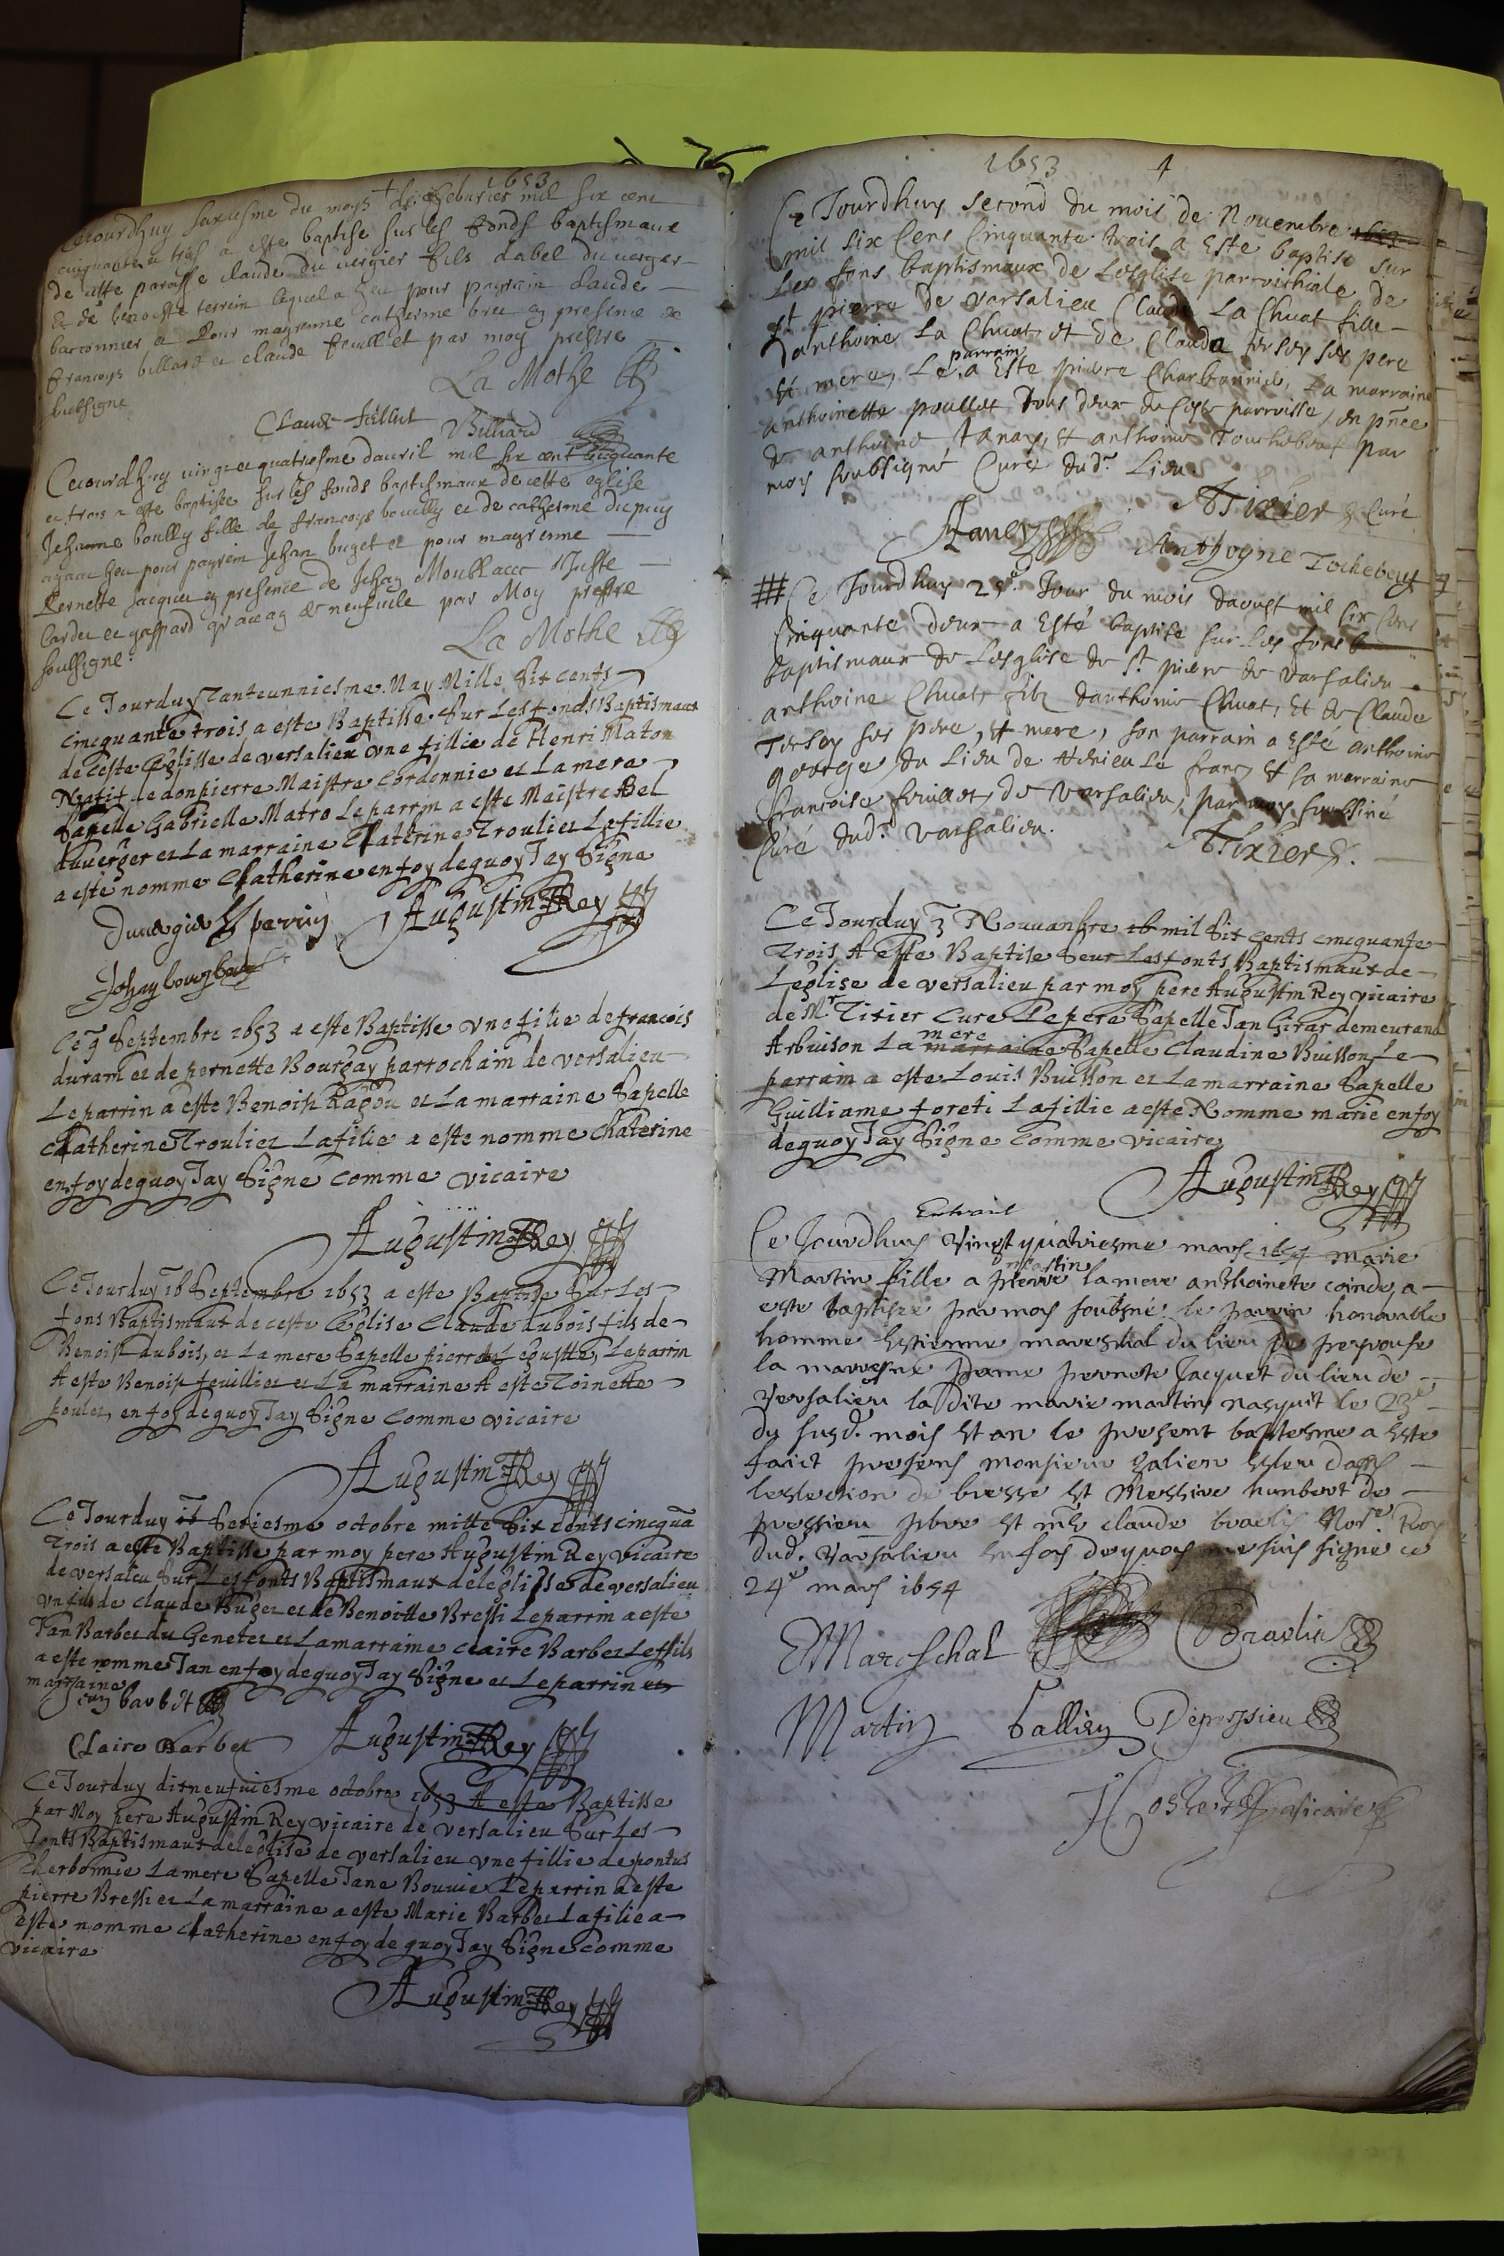 1653
Cejourdhuy sixiesme du moys de febvrier mil six cent
cinquante trois a este baptise sur les fonds baptismaux
de cette paroisse claude du vergier fils dabel du verger
Et de benoiste terrein lequel a heu pour payrein claude
barconnier et pour mayrenne catherine bret en presence de
francoys billard et claude feuillet par moy prestre
soubsigne
La Mothe
Claude feillut Billiard
Cejourdhuy vingt et quatriesme davril mil six cent cinquante
et trois a este baptisee sur les fonds baptismaux de cette eglise
Jehanne boully fille de francoys boully et de catherine dupuy
ayant heu pour payrein Jehan buget et pour mayrenne
Pernette Jacquet en presence de Jehan
Cardet et gaspard par Moy prestre
soulsigne
La Mothe
Ce Jourduy Tanteunniesme May Mille Sit cents
cincquante trois a este Baptisse Sur Les fonds Baptismaut
de ceste Eglisse de versalieu vne fillie de Henri Maton
Natif de donpierre Maistre Cordonnie et La mere
Sapelle Gabrielle Matro Le parrin a este Maistre Bel
duverger et La marraine Chaterine Troulier La fillie
a este nomme Chatherine en foy de quoy Jay Signe
Duuergier perrin Augustin Rey
Ce 9 Septembre 1653 a este Baptisse vne filie de francois
duram et de pernette Bourgay parrochain de versalieu
Le parrin a este Benoist Ragou et La marraine Sapelle
Chatherine Troulier La filie a este nomme chaterine
en foy de quoy Jay Signe comme vicaire
Augustin Rey
Ce Jourduy 16 Septembre 1653 a este Baptise Sur Les
fons Baptismaut de ceste Eglise Claude dubois fils de
Benoist dubois, et La mere Sapelle pierrat Le parrin
A este Benoist feuillier et La marraine A este Toinette
poulet, en foy de quoy Jay Signe comme vicaire
Augustin Rey
Ce Jourduy Setiesme octobre mille Sit cents cincqua
Trois a este Baptisse par moy pere Augustin Rey vicaire
de versaleu Sur Les fonts Baptismaut de leglisse de versalieu
vn fils de Claude Buget et de Benoitte Bressi Le parrin a este
Jan Barbet du Genetet et La marraine claire Barbet Le fils
a este nomme Jan en foy de quoy Jay Signe et Le parrin et
marraine
Jan barbet
Claire Barbet Augustin Rey
Ce Jourduy ditneufviesme octobre 1653 A este Baptisse
par Moy pere Augustin Rey vicaire de versalieu Sur Les
fonts Baptismaut de leglise de versalieu vne fillie de pontus
cherbonnie La mere Sapelle Jane Bouvie Le parrin a este
pierre Bressi et La marraine a este Marie Barbet La filie a
este nomme Chatherine en foy de quoy Jay Signe comme
vicaire
Augustin Rey
1653 4
Ce Jourdhuy second du mois de Nouembre 1653
mil six Cens Cinquante trois a Esté baptisé sur
Les fons baptismaux de Lesglise parroichiale de
St pierre de Varsalieu Claude La Chuat fille
danthoine La Chuat et de Claude Torsoy ses pere
Et mere, Le parrain a Esté pierre Charbonnier, La marraine
anthoinette poullet tous deux du Ceste parroisse, en pnce
de anthoine Tanay, Et anthoine Touchebeuf par
moy soubsigné Curé dudt Lieu
ATixier Curé
Taney Anthoyne Tochebeuf
Ce Jourdhuy 25e Jour du mois daoust mil six Cens
Cinquante deux a Esté baptisé sur Les fons
baptismaux de Lesglise de St pierre de Varsalieu
anthoine Chuat, filz danthoine Chuat, Et de Claude
Torsoy ses pere, Et mere, son parrain a Esté anthoine
george, du Lieu de Et sa marraine
francoise fouillet, de Versalieu, par moy soubsiné
Curé dud. Varsalieu.
ATixier
Ce Jourduy 3 Nouuanbre mil Sit cents cincquante
Trois A este Baptise Seur Les fonts Baptismaut de
Leglise de versalieu par moy pere Augustin Rey vicaire
de Mr Titier Cure Le pere Sapelle Jan Girar demeurand
Arbuison La marraine mere Sapelle Claudine Buisson Le
parrain a este Louis Buisson et La marraine Sapelle
Guilliame foreti La fillie a este Nomme marie en foy
de quoy Jay Signe comme vicaire
Augustin Rey
Extrait
Ce Jourdhuy Vingt quatriesme mars 1654 marie
Martin fille a pierre martin la mere anthoinete coindo, a
este baptisee par moy soubsné le parrin honorable
homme Estienne mareschal du lieu de
la marreyne Dame pernete Jacquet du lieu de
Versalieu la dite marie martin nasquit le 23e
du susd. mois Et an le present baptesme a Este
faict presens monsieur galien Esleu dans
leslection de bresse Et Messire humbert de
pressieu pbre Et me claude braelis Nore Roy
dud. Varsalieu En foy de quoy me suis signé ce
24e mars 1654
EMareschal
Martin Gallien Depressieu